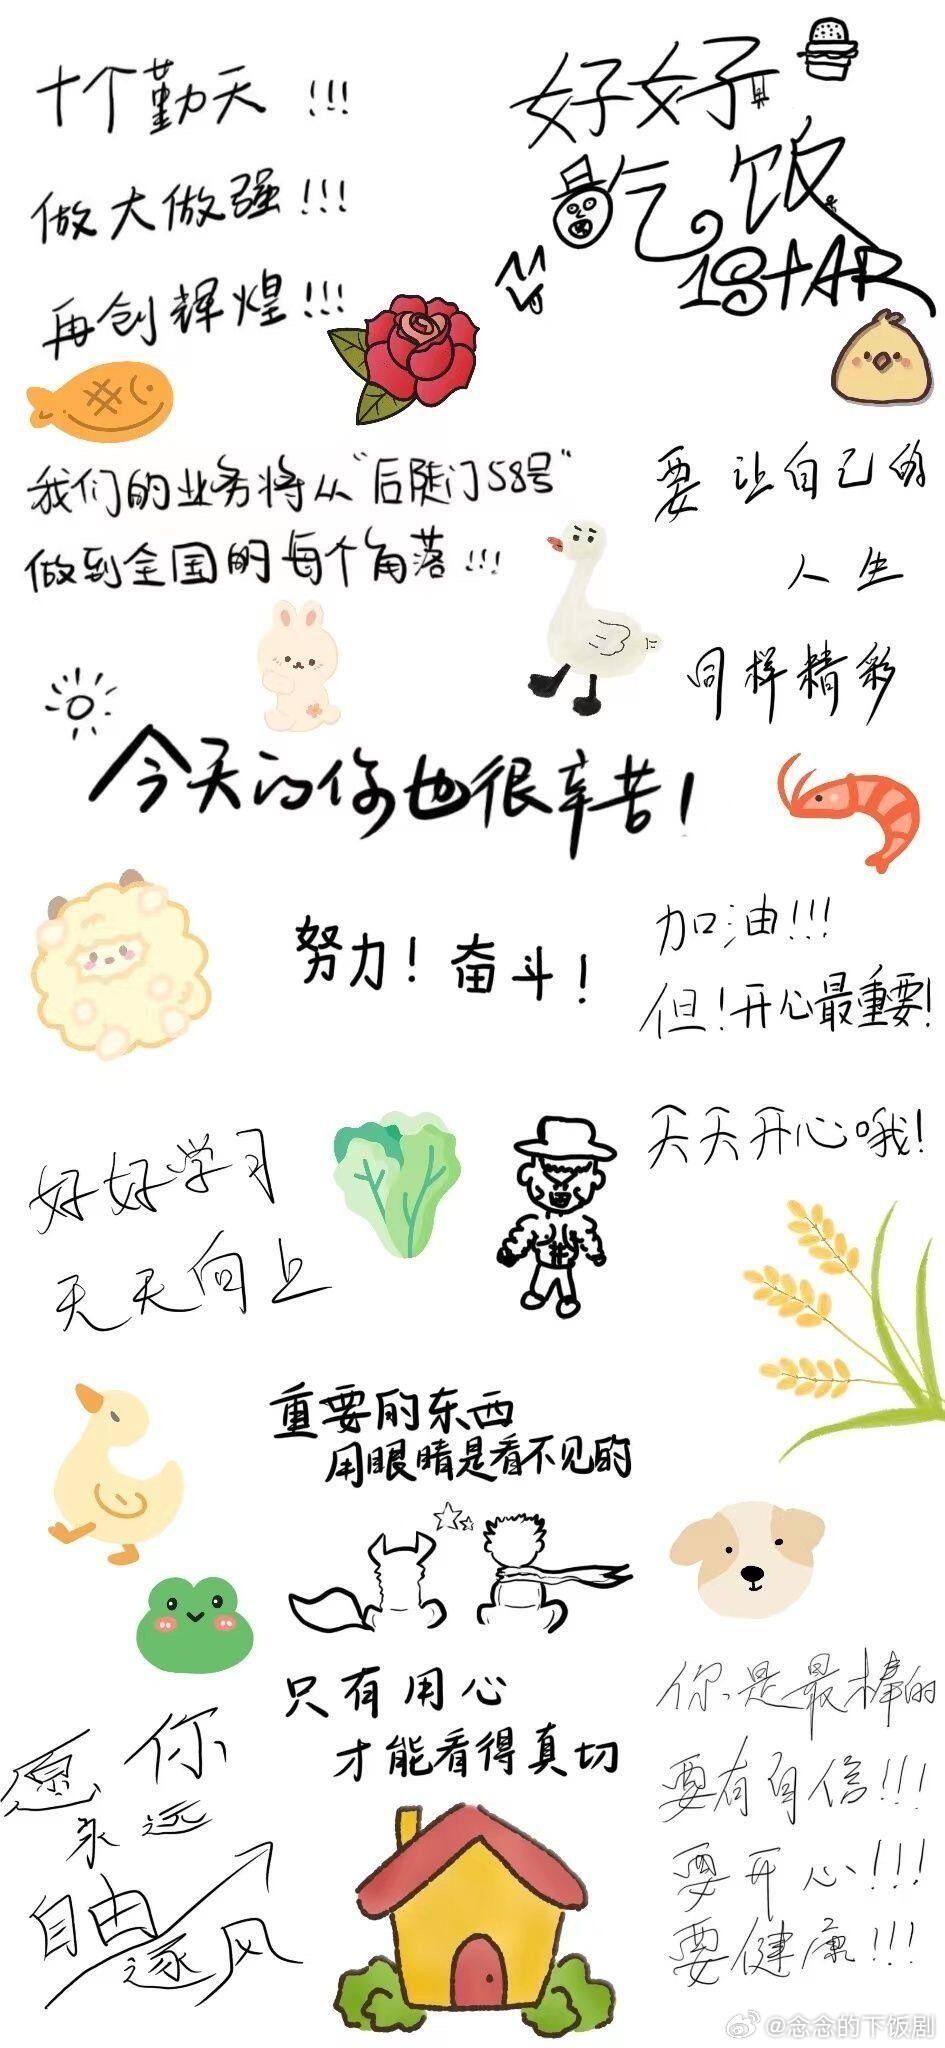 十个勤天!!!
做大做强!!!
再创辉煌!!!
好好
吃饭
1StAR
我们的业务将从“后陡门58号”
做到全国的每个角落!!!
要让自己的
人生
同样精彩
今天的你也很辛苦!
努力!奋斗!
加油!!!
但!开心最重要!
天天开心哦!
好好学习
天天向上
重要的东西
用眼睛是看不见的
只有用心
才能看得真切
愿你
永远
自由
逐风
你是最棒的
要有自信!!!
要开心!!!
要健康!!!
@念念的下饭剧